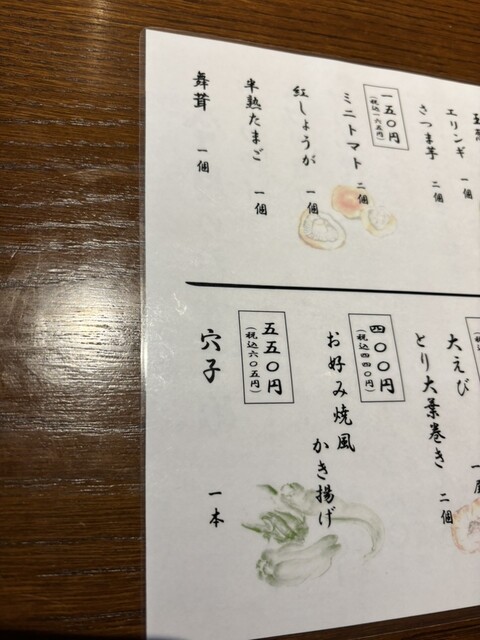 エリンギ 一個
さつま芋 二個
一五〇円
(税込一六五円)
ミニトマト 二個
紅しょうが 一個
半熟たまご 一個
舞茸 一個
大えび
とり大葉巻き 二個
四〇〇円
(税込四四〇円)
お好み焼風
かき揚げ
五五〇円
(税込六〇五円)
穴子 一本